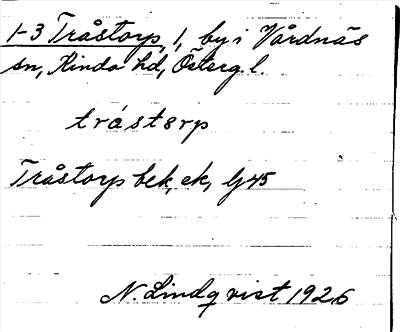 1-3 Tråstorp, 1, by i Vårdnäs
sn, Kinda hd, Östergl.
tråstårp
Tråstorp bek, ek, Gj 45
N. Lindqvist 1926